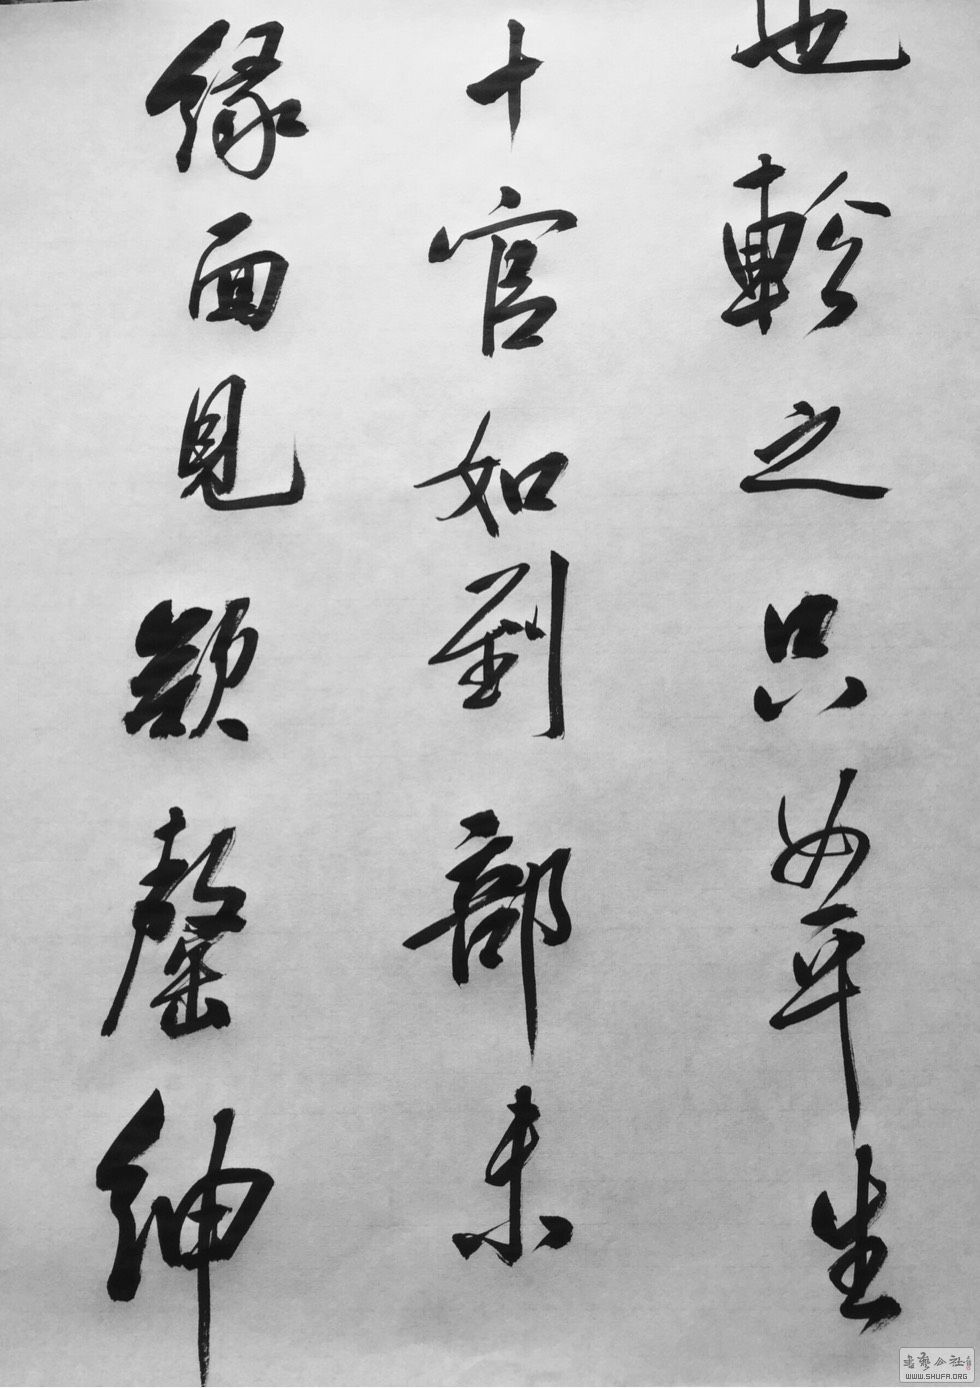 也軫之只如平生
十官如到部未
緣面見欲罄紳
書藝公社
WWW.SHUFA.ORG